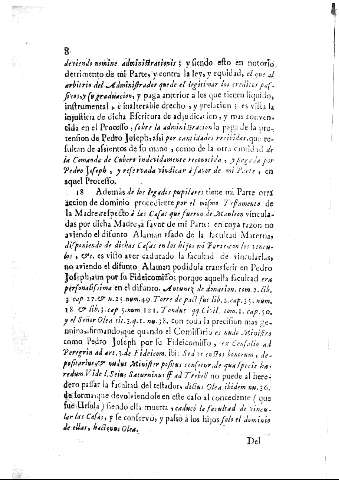 8
deviendo nomine administrationis; y siendo esto en notorio
detrimento de mi Parte, y contra la ley, y equidad, el que al
arbitrio del Administrador quede el legitimar los creditos pas-
sivos, y su graduacion, y paga anterior à los que tienen liquido,
instrumental, è inalterable drecho, y prelacion; es vista la
injusticia de dicha Escritura de adjudicacion, y mas conven-
cida en el Processo, sobre la administracion la paga de la pro-
tension de Pedro Joseph, assi por cantidades recividas, que re-
sultan de assientos de su mano, como de la otra cantidad de
la Comanda de Cubero indevidamente reconocida, y pagada por
Pedro Joseph, y reservada vindicar à favor de mi Parte, en
aquel Processo.
18 Además de los legados pupilares tiene mi Parte otra
accion de dominio procedente por el mismo Testamento de
la Madre respecto à las Casas que fueron de Manleon vincula-
das por dicha Madre à favor de mi Parte: en cuya razon no
aviendo el difunto Alaman usado de la facultad Materna,
disponiendo de dichas Casas en los hijos mi Parte con los vincu-
los, &c. es visto aver caducado la facultad de vincularlas,
no aviendo el difunto Alaman podidola transferir en Pedro
Joseph aun por su Fideicomisso: porque aquella facultad era
personalissima en el difunto. Autunez de donation. tom. 2. lib.
3 cap 17. & n. 25. num. 49. Torre de pact. fut. lib. 2. cap. 35. num.
18 & lib. 3. cap 5. num 101. Tondut. qq Civil. tom. 2. cap. 50.
y el Señor Olea tit. 3. q. 1. num. 38. con toda la precision mas ge-
nuina, afirmando que quando el Comissario es nudo Ministro
como Pedro Joseph por su Fideicomisso, ex Consalio ad
Peregrin ad art. 3. de Fideicom. ibi: Sed is custos bonorum, de-
positarius & nudus Minister positus censetur, de qua specie hæ-
redum Vide l. Seius Saturninus ff ad Trebell no puede al here-
dero passar la facultad del testador: dicius Olea ibidem nu. 36.
de forma que devolviendole en este caso al concedente (que
fue Ursula) siendo ella muerta, caducò la facultad de vincu-
lar las Casas, y se conservò, y passò à los hijos solo el dominio
de ellas, hac idem Olea.
Del